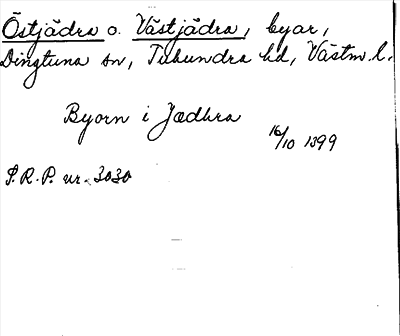 Östjädra o. Västjädra, byar,
Dingtuna sn, Tuhundra hd, Västm. l.
Byorn i Jædhra
16/10 1399
S.R.P. nr. 3030